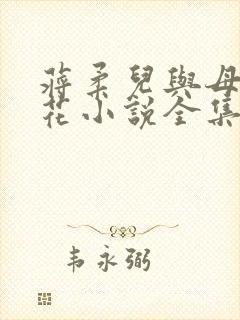 蔣柔兒與母
花小說全集
韦永弼